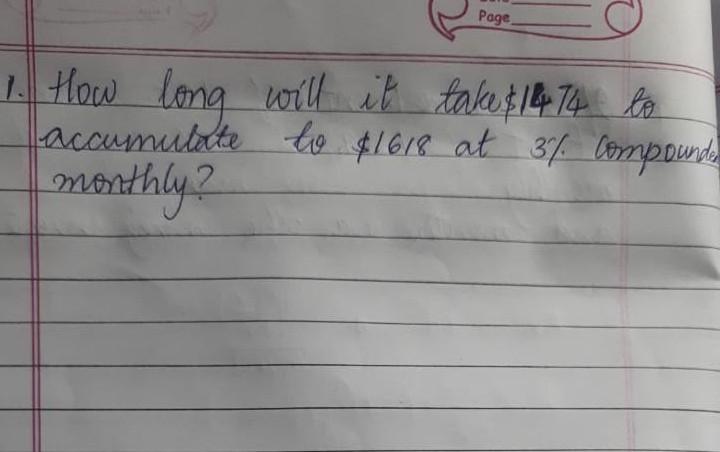 Page
1. How long will it take $1474 to
accumulate to $1618 at 3% compounde
monthly?